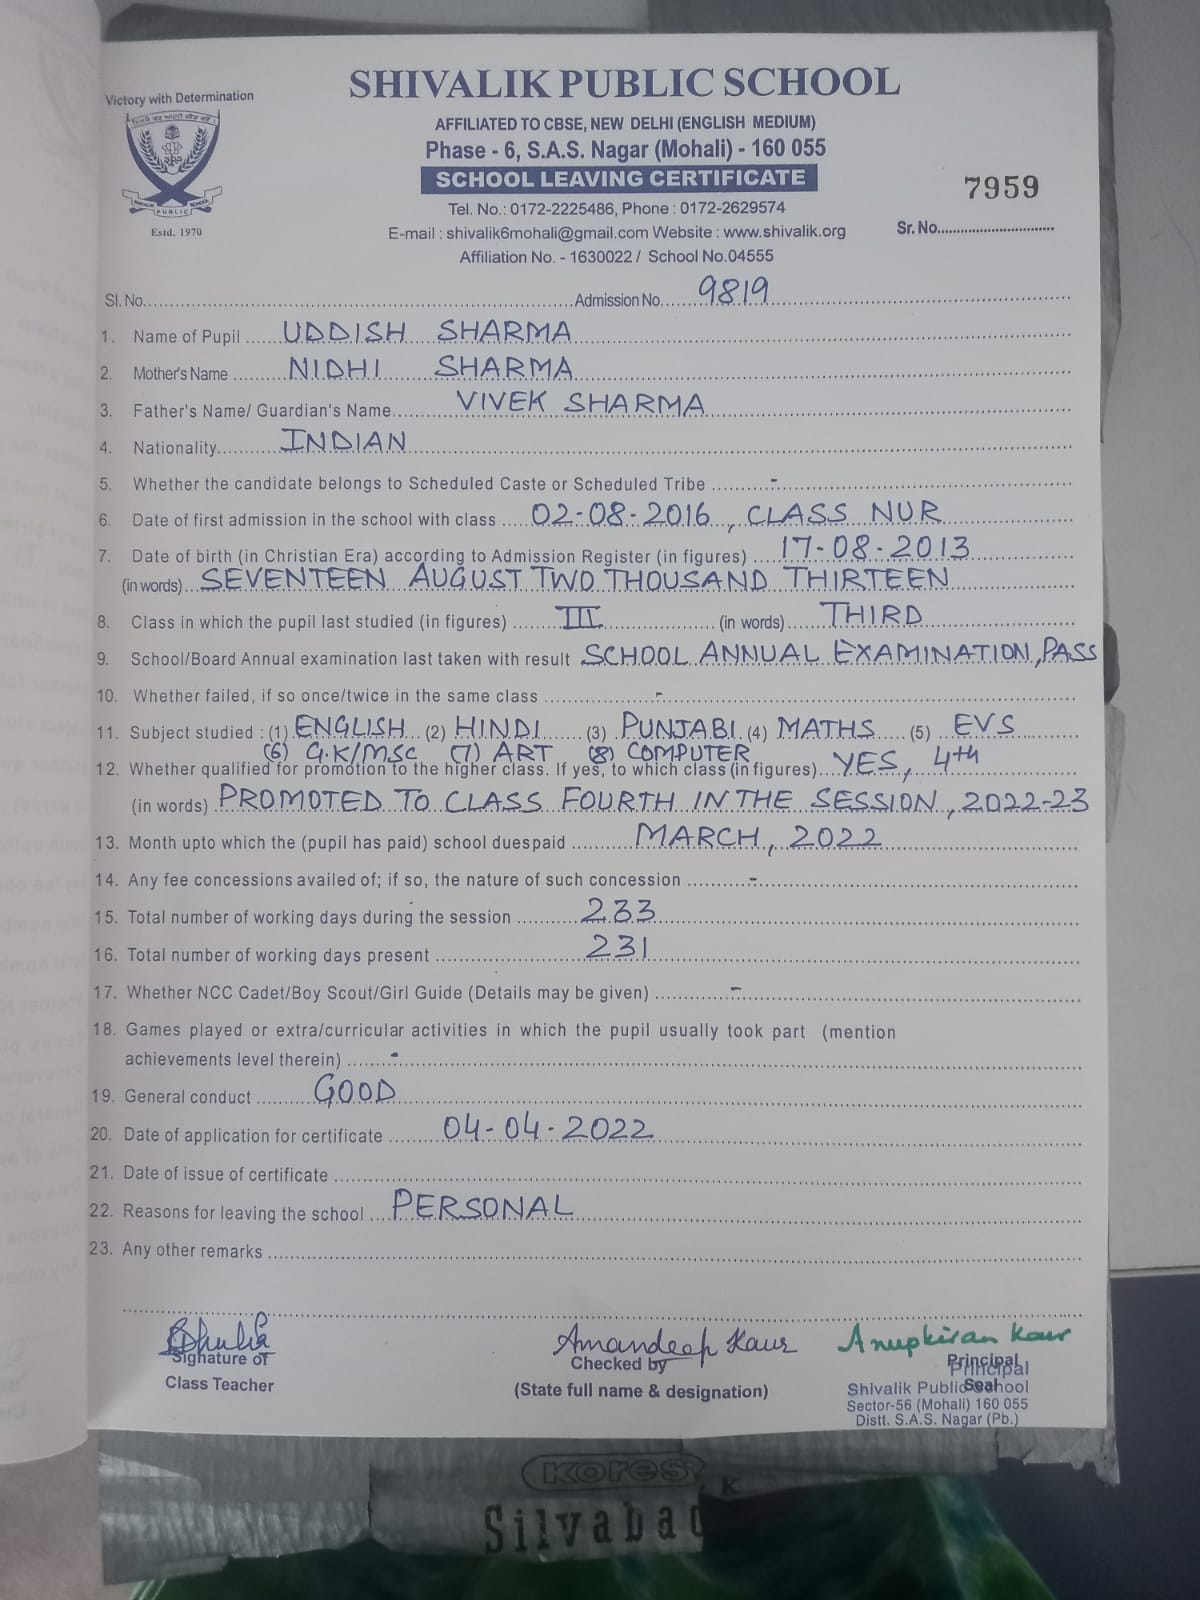 Victory with Determination
SHIVALIK PUBLIC SCHOOL
AFFILIATED TO CBSE, NEW DELHI (ENGLISH MEDIUM)
Phase - 6, S.A.S. Nagar (Mohali) - 160 055
SCHOOL LEAVING CERTIFICATE
7959
SHIVALIK PUBLIC SCHOOL
Estd. 1970
Tel. No.: 0172-2225486, Phone : 0172-2629574
E-mail : shivalik6mohali@gmail.com Website : www.shivalik.org
Sr. No.
Affiliation No. - 1630022 / School No.04555
Sl. No. Admission No. 9819
1. Name of Pupil UDDISH SHARMA
2. Mother's Name NIDHI SHARMA
3. Father's Name/ Guardian's Name VIVEK SHARMA
4. Nationality INDIAN
5. Whether the candidate belongs to Scheduled Caste or Scheduled Tribe -
6. Date of first admission in the school with class 02-08-2016, CLASS NUR
7. Date of birth (in Christian Era) according to Admission Register (in figures) 17-08-2013
(in words) SEVENTEEN AUGUST TWO THOUSAND THIRTEEN
8. Class in which the pupil last studied (in figures) III (in words) THIRD
9. School/Board Annual examination last taken with result SCHOOL ANNUAL EXAMINATION, PASS
10. Whether failed, if so once/twice in the same class -
11. Subject studied : (1) ENGLISH (2) HINDI (3) PUNJABI (4) MATHS (5) EVS
(6) G.K/MSC (7) ART (8) COMPUTER
12. Whether qualified for promotion to the higher class. If yes, to which class (in figures) YES, 4th
(in words) PROMOTED TO CLASS FOURTH IN THE SESSION, 2022-23
13. Month upto which the (pupil has paid) school duespaid MARCH, 2022
14. Any fee concessions availed of; if so, the nature of such concession -
15. Total number of working days during the session 233
16. Total number of working days present 231
17. Whether NCC Cadet/Boy Scout/Girl Guide (Details may be given) -
18. Games played or extra/curricular activities in which the pupil usually took part (mention
achievements level therein) -
19. General conduct GOOD
20. Date of application for certificate 04-04-2022
21. Date of issue of certificate
22. Reasons for leaving the school PERSONAL
23. Any other remarks
Amandeep Kaur Anupkiran Kaur
Signature of Checked by Principal
Principal
Class Teacher (State full name & designation) Seal
Shivalik Public School
Sector-56 (Mohali) 160 055
Distt. S.A.S. Nagar (Pb.)
Kores
K